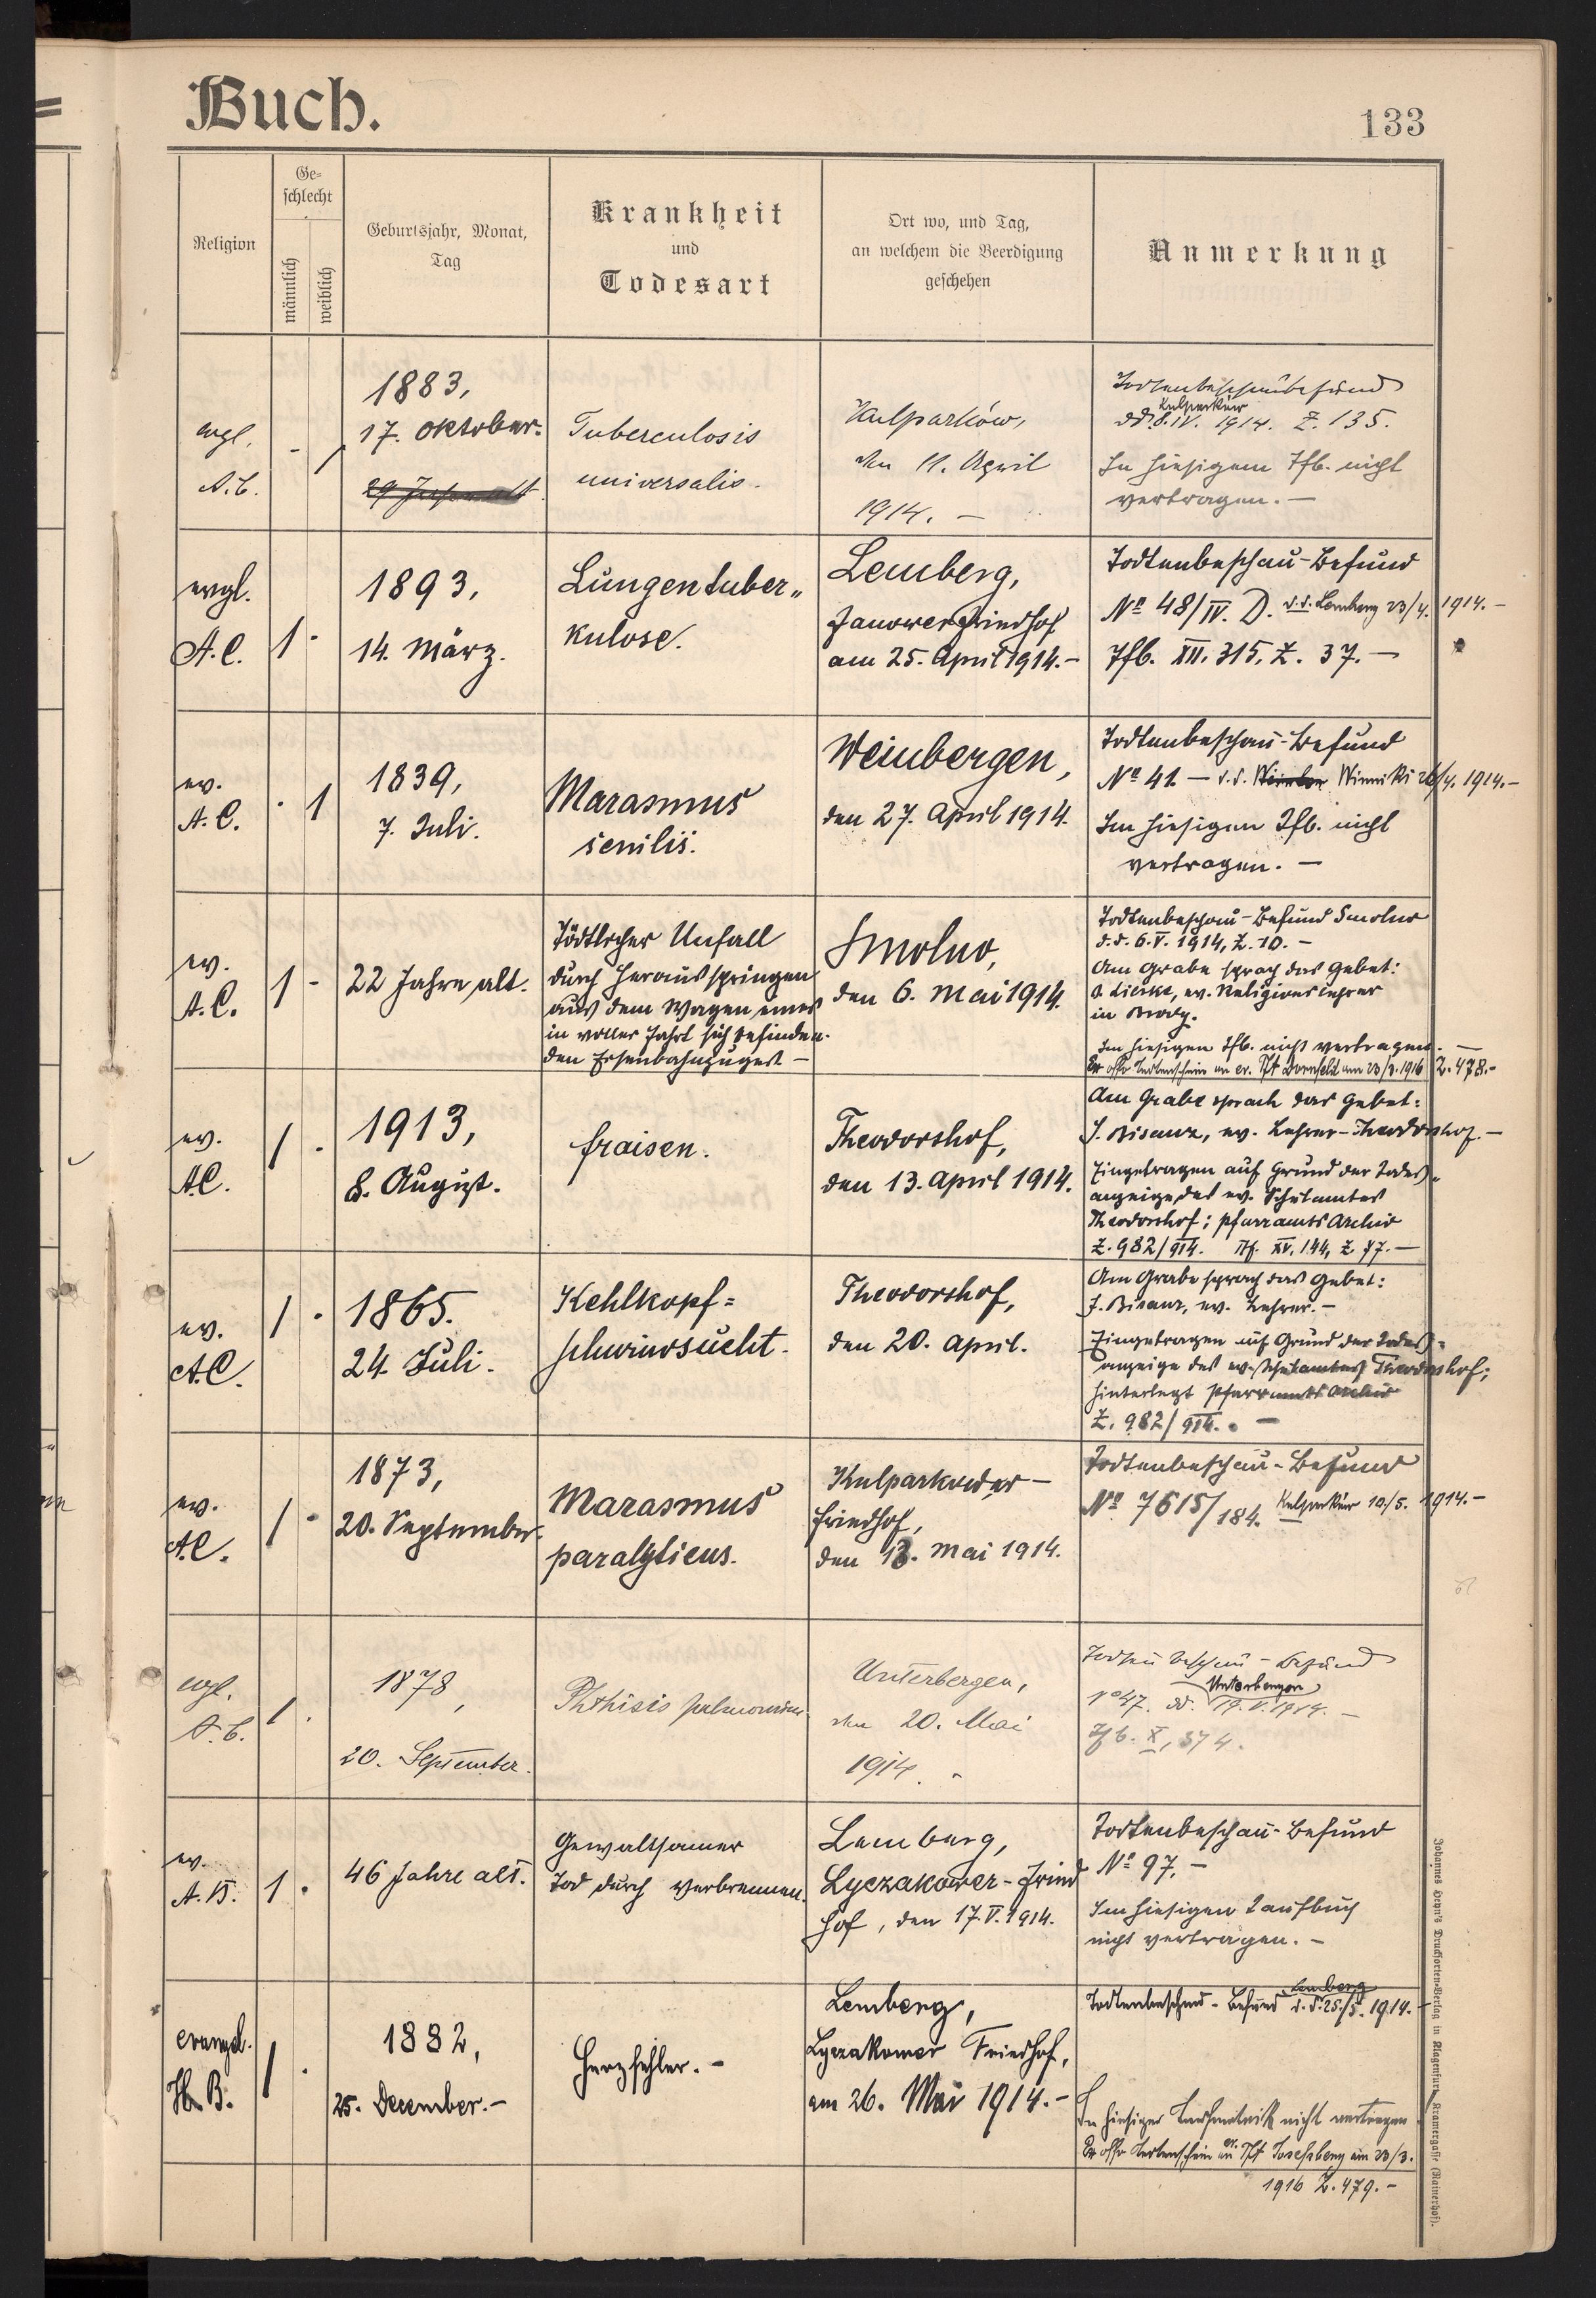 Buch.
133
Religion
Ge-
schlecht
männlich
weiblich
Geburtsjahr, Monat,
Tag
Krankheit
und
Todesart
Ort wo, und Tag,
an welchem die Beerdigung
geschehen
Anmerkung
evgl.
A.C.
- 1
1883,
17. Oktober.
Tuberculosis
universalis.
Kulparków,
den 11. April
1914. -
Todtenbeschaubefund
Kulparków
dd. 8. IV. 1914. Z. 135.
Im hiesigem Tfb. nicht
vertragen. -
evgl.
A.C.
1 -
1893,
14. März.
Lungentuber„
kulose.
Lemberg,
Janower Friedhof
am 25. April 1914. -
Todtenbeschau-Befund
Nº 48/IV. D. d.d. Lemberg 23/4. 1914. -
Tfb. XII. 315, Z. 37. -
ev.
A.C.
- 1
1839,
7. Juli.
Marasmus
senilis.
Weinbergen,
den 27. April 1914.
Todtenbeschau-Befund
Nº 41 - d.d. Winniki 26/4. 1914. -
Im hiesigen Tfb. nicht
vertragen. -
ev.
A.C.
1 -
22 Jahre alt.
Tödtlicher Unfall
durch Herausspringen
aus dem Wagen eines
in voller Fahrt sich befinden-
den Eisenbahnzuges -
Smolno,
den 6. Mai 1914.
Todtenbeschau-Befund Smolno
d.d. 6. V. 1914, Z. 10. -
Am Grabe sprach das Gebet:
ev. Religionslehrer
in Brody.
Im hiesigen Tfb. nicht vertragen. -
Ex offo Todtenschein an ev. Pft Dornfeld am 23/3. 1916 Z. 478. -
ev.
A.C.
1 -
1913,
8. August.
fraisen.
Theodorshof,
den 13. April 1914.
Am Grabe sprach das Gebet:
J. Bisanz, ev. Lehrer - Theodorshof. -
Eingetragen auf Grund der Todes-
anzeige des ev. Schulamtes
Theodorshof; Pfarramts Archiv
Z. 982/914. Tf. XV. 144, Z. 77. -
ev.
A.C.
1 -
1865.
24. Juli.
Kehlkopf=
schwindsucht.
Theodorshof,
den 20. April.
Am Grabe sprach das Gebet:
J. Bisanz, ev. Lehrer. -
Eingetragen auf Grund der Todes-
anzeige des ev. Schulamtes Theodorshof;
hinterlegt Pfarramts Archiv
Z. 982/914. -
ev.
A.C.
1 -
1873,
20. September.
Marasmus
paralyticus.
Kulparkower-
friedhof,
den 13. Mai 1914.
Todtenbeschau-Befund
Nº 7615/184. Kulparków 10/5. 1914. -
evgl.
A.C.
1 -
1878,
20. September.
Phthisis pulmonum.
Unterbergen,
den 20. Mai
1914. -
Todtenbeschau-Befund
Unterbergen
Nº 47. dd. 19. V. 1914. -
Tfb. X, 374.
ev.
A.B.
1 -
46 Jahre alt.
Gewaltsamer
Tod durch Verbrennen.
Lemberg,
Lyczakower-Fried
hof, den 17. V. 1914.
Todtenbeschau-Befund
Nº 97. -
Im hiesigen Taufbuch
nicht vertragen. -
evangel.
H.B.
1 -
1882,
25. December. -
Herzfehler. -
Lemberg,
Lyczakower Friedhof,
am 26. Mai 1914. -
Lemberg
Todtenbeschau-Befund d.d. 25./5. 1914. -
In hiesiger Taufmatrik nicht vertragen
Ex offo Todtenschein an ev. Pft Josefsberg am 23/3.
1916 Z. 479. -
Johannes Heyn's Drucksorten-Verlag in Klagenfurt, Kramergasse (Rainerhof).